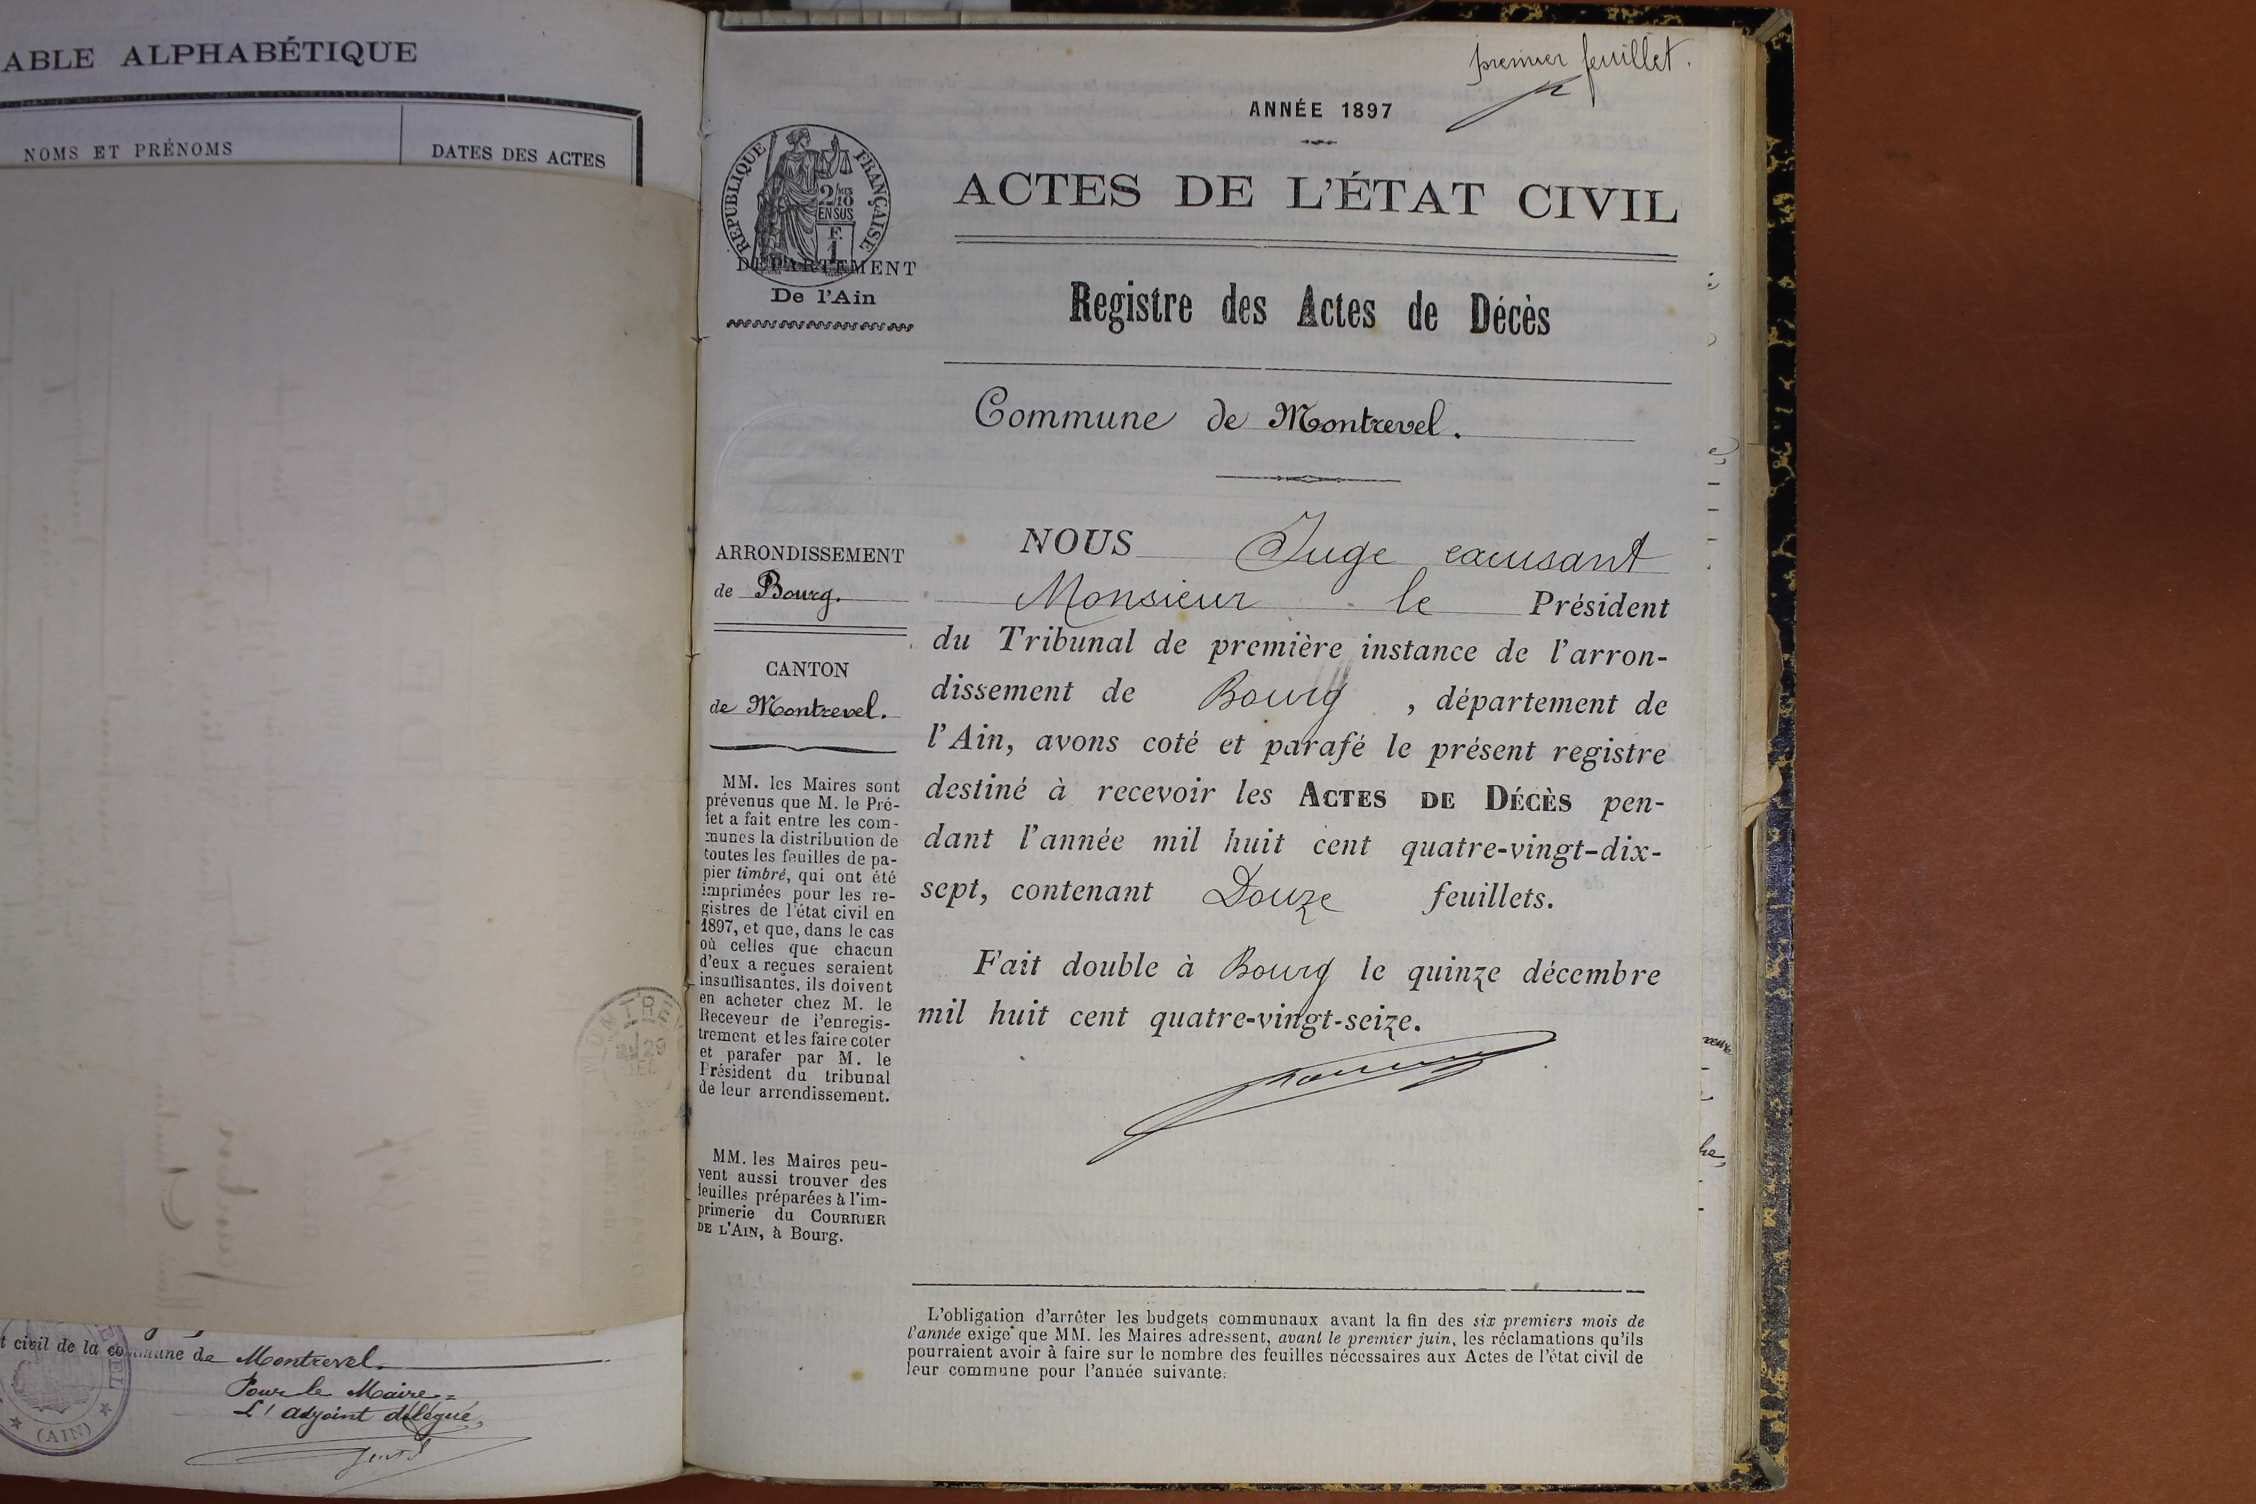 TABLE ALPHABÉTIQUE
NOMS ET PRÉNOMS
DATES DES ACTES
MONTREVEL
29
t civil de la commune de Montrevel.
Pour le Maire =
L'adjoint délégué,
(AIN)
premier feuillet.
ANNÉE 1897
RÉPUBLIQUE FRANÇAISE
2/10
EN SUS
F.
1
ACTES DE L'ÉTAT CIVIL
DÉPARTEMENT
De l'Ain
Registre des Actes de Décès
Commune de Montrevel.
ARRONDISSEMENT
de Bourg.
CANTON
de Montrevel.
MM. les Maires sont
prévenus que M. le Pré-
fet a fait entre les com-
munes la distribution de
toutes les feuilles de pa-
pier timbré, qui ont été
imprimées pour les re-
gistres de l'état civil en
1897, et que, dans le cas
où celles que chacun
d'eux a reçues seraient
insuffisantes, ils doivent
en acheter chez M. le
Receveur de l'enregis-
trement et les faire coter
et parafer par M. le
Président du tribunal
de leur arrondissement.
MM. les Maires peu-
vent aussi trouver des
feuilles préparées à l'im-
primerie du COURRIER
DE L'AIN, à Bourg.
NOUS Juge excusant
Monsieur le Président
du Tribunal de première instance de l'arron-
dissement de Bourg, département de
l'Ain, avons coté et parafé le présent registre
destiné à recevoir les ACTES DE DÉCÈS pen-
dant l'année mil huit cent quatre-vingt-dix-
sept, contenant Douze feuillets.
Fait double à Bourg le quinze décembre
mil huit cent quatre-vingt-seize.
L'obligation d'arrêter les budgets communaux avant la fin des six premiers mois de
l'année exige que MM. les Maires adressent, avant le premier juin, les réclamations qu'ils
pourraient avoir à faire sur le nombre des feuilles nécessaires aux Actes de l'état civil de
leur commune pour l'année suivante.